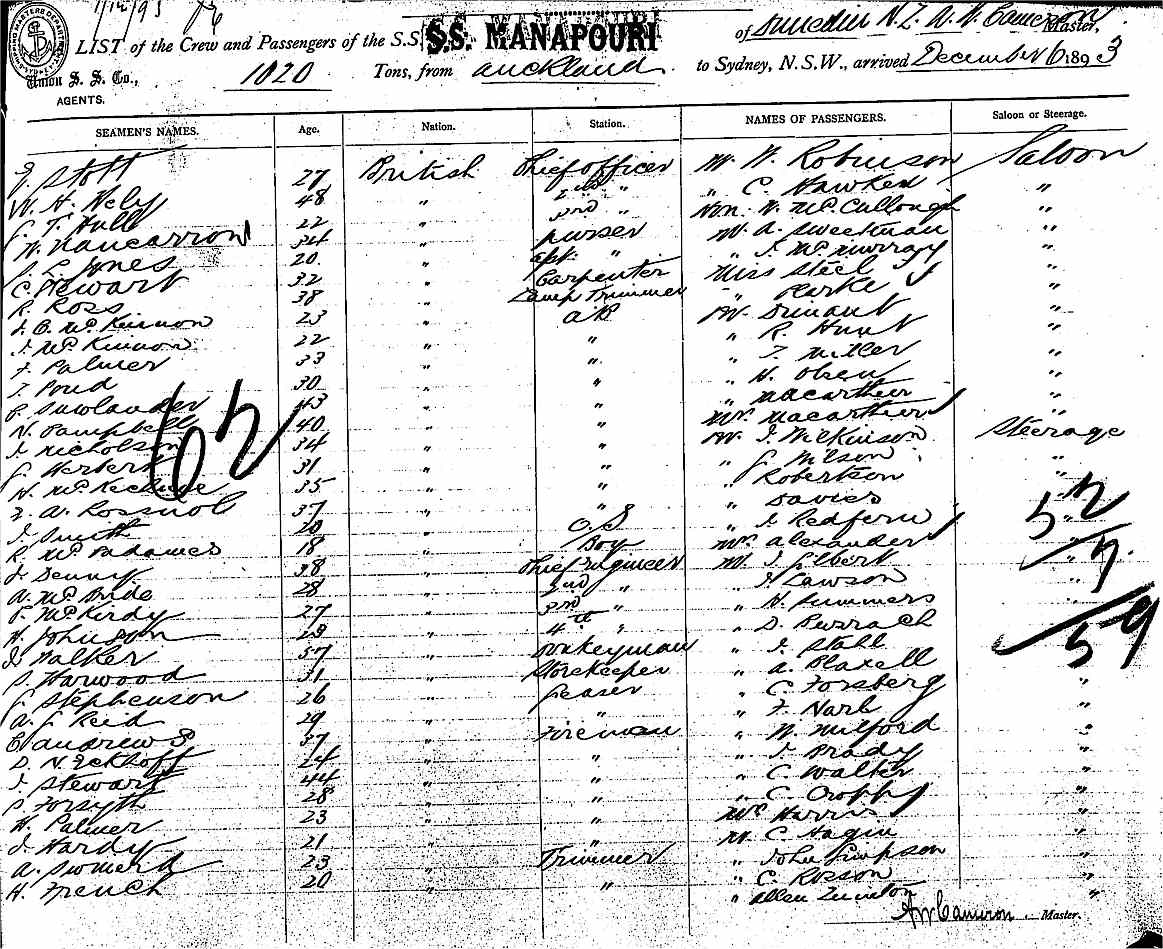 1/12/93 76
LIST of the Crew and Passengers of the S.S. S.S. MANAPOURI of Dunedin N.Z. A. W. Cameron Master,
Union S. S. Co., 1020 Tons, from Auckland to Sydney, N.S.W., arrived December 6 1893
AGENTS.
SEAMEN'S NAMES. Age. Nation. Station. NAMES OF PASSENGERS. Saloon or Steerage.
Stott 27 British Chief officer Mr W. Robinson Saloon
W. H. Hely 48 " 2nd " " C Hawken "
Hull 22 " 3rd " Hon. W. McCullough "
W. Nancarrow 34 " purser Mr A. Sweetman "
Jones 20 " " " J. McMurray "
C Stewart 32 " Carpenter Miss Steel "
R. Ross 38 " Lamp Trimmer " "
McKinnon 23 " AB Mr "
J. McKinnon 22 " " " R. Hunt "
F. Palmer 33 " " " Miller "
T. Pond 30 " " " H. Olsen "
43 " " " Macarthur "
N. Campbell 40 " " Mrs Macarthur "
J. Nicholson 34 " " Mr J. Wilkinson Steerage
Herbert 31 " " " Wilson "
35 " " " Robertson "
Rossnol 37 " " " Davies "
J. Smith 20 " O.S " J. Redfern 52
R. 18 " Boy Mrs Alexander 7
J. Denny 38 " Chief Engineer Mr J. Gilbert "
A. McBride 28 " 2nd " " J. Lawson "
McKirdy 27 " 3rd " " H. Summers
H. Johnson 23 " 4th " " D. 59
J. Walker 37 " Donkeyman " J. Stahl
S. Harwood 31 " Storekeeper " A. Plaxell
Stephenson 26 " Greaser " C Forsberg "
A. Reid 29 " " " F. "
Andrews 37 " Fireman " W. Milford "
D. N. Eckhoff 24 " " " J. Brady "
J. Stewart 44 " " " C. Walter "
Forsyth 28 " " " C. Cropp "
H. Palmer 23 " " Mrs Harris "
J. Hardy 21 " " Mr C Hagin "
A. 23 " Trimmer " John Simpson "
H. French 20 " " " C. Rosson "
" Allen Quinton "
62
AW Cameron Master.